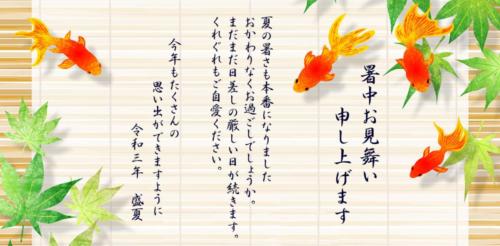 暑中お見舞い
申し上げます
夏の暑さも本番になりました
おかわりなくお過ごしでしょうか。
まだまだ日差しの厳しい日が続きます。
くれぐれもご自愛ください。
今年もたくさんの
思い出ができますように
令和三年 盛夏